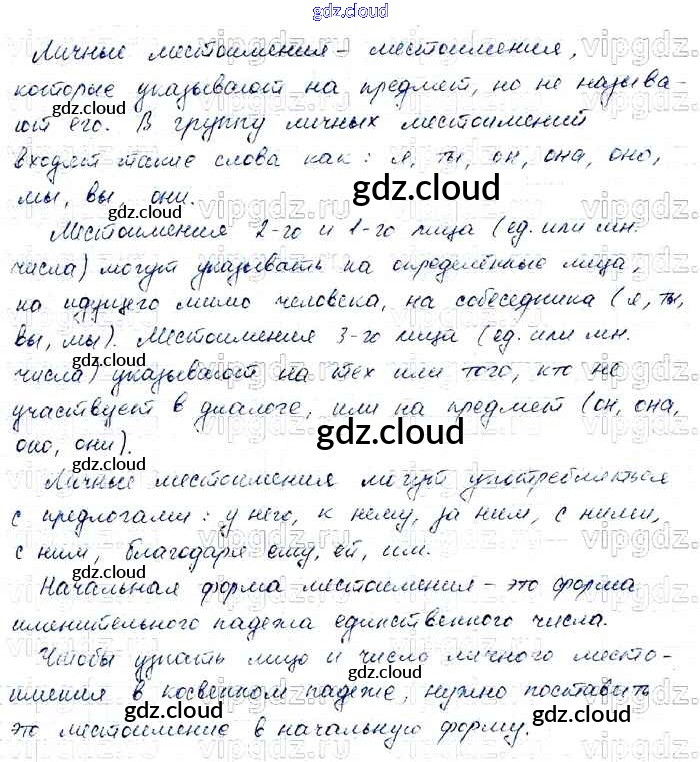 gdz.cloud
Личные местоимения - местоимения,
которые указывают на предмет, но не называ-
gdz.cloud
ют его. В группу личных местоимений
входят такие слова как: я, ты, он, она, оно,
gdz.cloud
мы, вы, они.
gdz.cloud
Местоимения 2-го и 1-го лица (ед. или мн.
числа) могут указывать на определённые лица,
на идущего мимо человека, на собеседника (я, ты,
вы, мы). Местоимения 3-го лица (ед. или мн.
gdz.cloud
числа) указывают на тех или того, кто не
участвует в диалоге, или на предмет (он, она,
gdz.cloud
оно, они).
gdz.cloud
Личные местоимения могут употребляться
с предлогами: у него, к нему, за ним, с ними,
с ним, благодаря ему, ей, им.
gdz.cloud
Начальная форма местоимения - это форма
именительного падежа единственного числа.
Чтобы узнать лицо и число личного место-
имения в косвенном падеже, нужно поставить
gdz.cloud
gdz.cloud
это местоимение в начальную форму.
vipgdz.ru